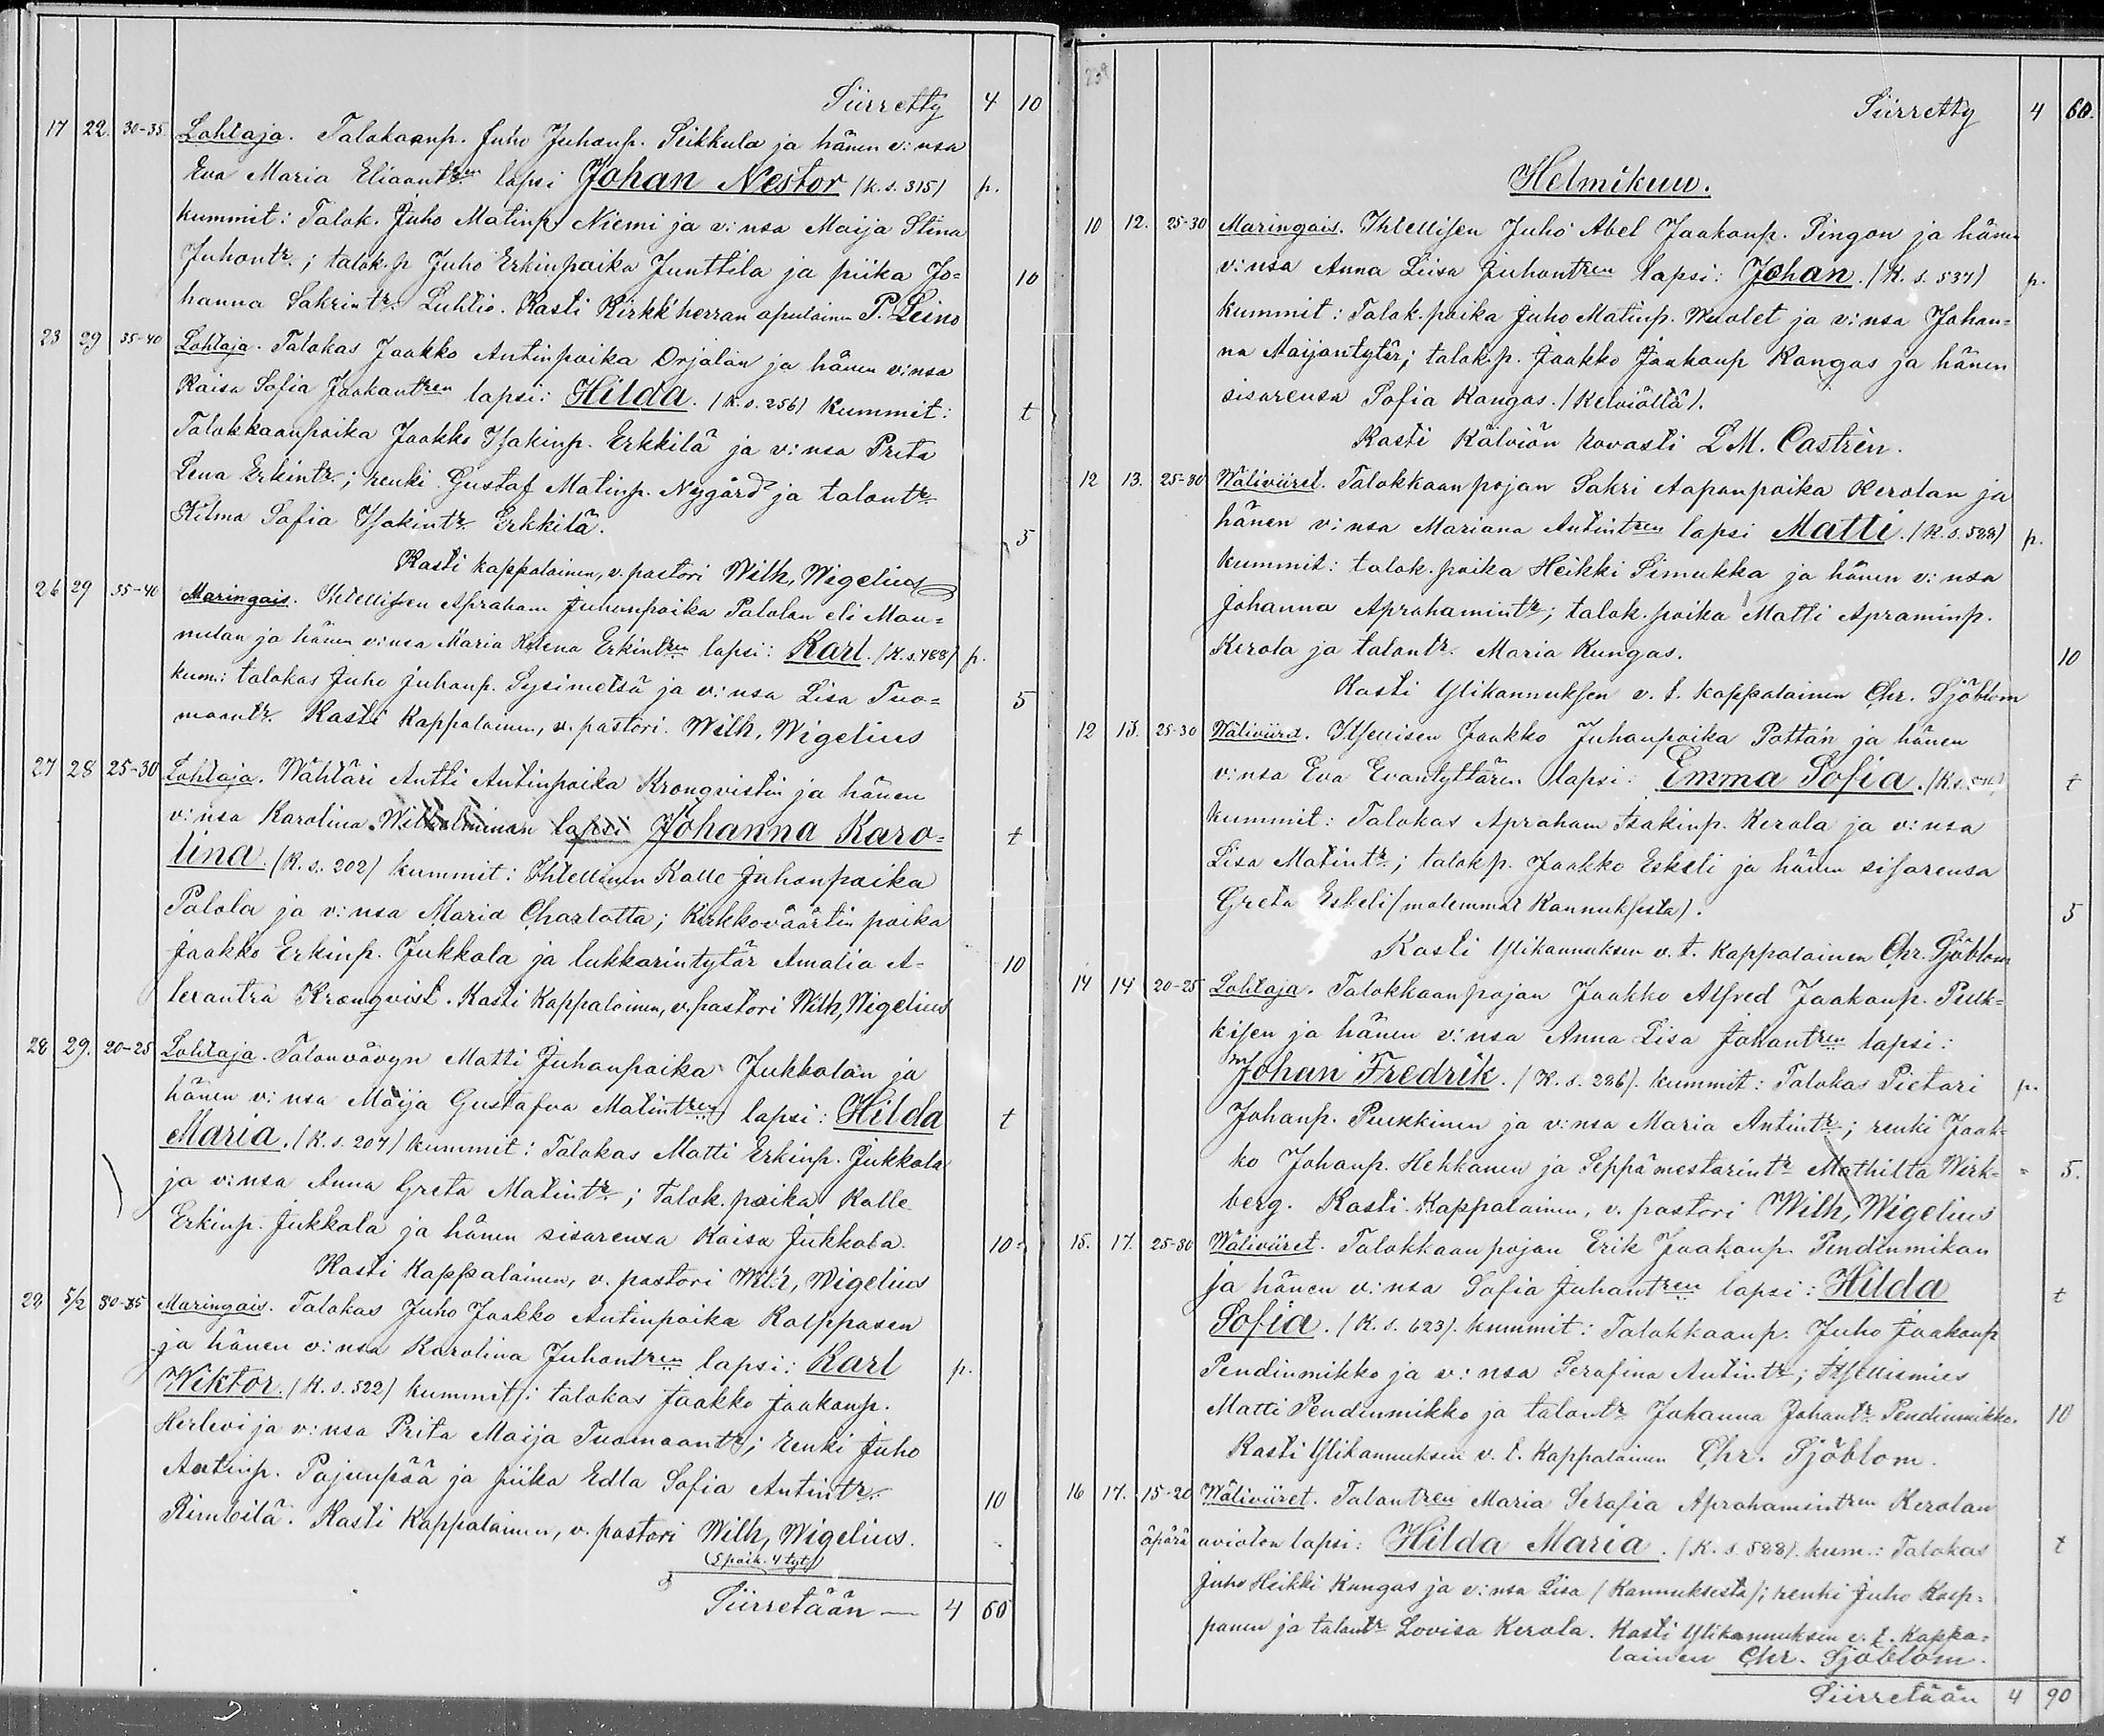 Siirretty 4 10
17 22. 30-35. Lohtaja. Talokaanp. Juho Juhanp. Seikkula ja hänen v:nsa
Eva Maria Eliaantren lapsi Johan Nestor (K.s. 315) p.
kummit: Talok. Juho Matinp. Niemi ja v:nsa Maija Stina
Juhontr.; talok.p Juho Erkinpoika Junttila ja piika Jo=
hanna Sakrintr. Luhtio. Kasti Kirkk'herran apulainen P. Leino 10
23 29 35-40 Lohtaja. Talokas Jaakko Antinpoika Orjalan ja hänen v:nsa
Kaisa Sofia Jaakantren lapsi: Hilda. (K.s. 256) Kummit: t
Talokkaanpoika Jaakko Isakinp. Erkkilä ja v:nsa Prita
Lena Erkintr.; renki Gustaf Matinp. Nygård ja talontr.
Hilma Sofia Isakintr. Erkkilä. 5
Kasti kappalainen, v. pastori Wilh. Wigelius
26 29 35-40 Maringais. Ihtellisen Apraham Juhanpoika Palolan eli Man=
nilan ja hänen v:nsa Maria Helena Erkintren lapsi: Karl. (K.s. 488) p.
kum.: talokas Juho Juhanp. Sysimetsä ja v:nsa Lisa Tuo= 5
maantr. Kasti Kappalainen, v. pastori. Wilh. Wigelius
27 28 25-30 Lohtaja. Wahtäri Antti Antinpoika Kronqvistin ja hänen
v:nsa Karolina Wilhelminan lapsi Johanna Karo= t
lina. (K.s. 202) kummit: Ihtellinen Kalle Juhanpoika
Palola ja v:nsa Maria Charlotta; Kirkkoväärtin poika
Jaakko Erkinp. Jukkola ja lukkarintytär Amalia A= 10
lexantra Kronqvist. Kasti Kappalainen, v. pastori Wilh. Wigelius
28 29. 20-25 Lohtaja. Talonvävyn Matti Juhanpoika Jukkolan ja
hänen v:nsa Maija Gustafva Matintren lapsi: Hilda t
Maria. (K.s. 207) kummit: Talokas Matti Erkinp. Jukkola
ja v:nsa Anna Greta Matintr.; Talok. poika Kalle
Erkinp. Jukkola ja hänen sisarensa Kaisa Jukkola. 10
Kasti Kappalainen, v. pastori Wilh. Wigelius
29 5/2 30-35 Maringais. Talokas Juho Jaakko Antinpoika Kolppasen
ja hänen v:nsa Karolina Juhontren lapsi: Karl p.
Wiktor. (K.s. 522) kummit: talokas Jaakko Jaakonp.
Herlevi ja v:nsa Prita Maija Tuomaantr; renki Juho
Antinp. Pajunpää ja piika Edla Sofia Antintr. 10
Rimbilä. Kasti Kappalainen, v. pastori Wilh. Wigelius.
(5 poik. 4 tyt.)
Siirretään — 4 60
239
Siirretty 4 60.
Helmikuu.
10 12. 25-30 Maringais. Ihtellisen Juho Abel Jaakonp. Pingon ja hänen
v:nsa Anna Liisa Juhontren lapsi: Johan. (K.s. 534) p.
kummit: Talok. poika Juho Matinp. Wuolet ja v:nsa Johan=
na Maijantytär; talok.p. Jaakko Jaakonp Kangas ja hänen
sisarensa Sofia Kangas. (Kelviältä).
Kasti Kälviän rovasti L M. Castrèn.
12 13. 25-30 Wäliviiret. Talokkaanpojan Sakri Aapanpoika Kerolan ja
hänen v:nsa Mariana Antintren lapsi Matti. (K.s. 588) p.
kummit: talok. poika Heikki Simukka ja hänen v:nsa
Johanna Aprahamintr; talok. poika Matti Apraminp.
Kerola ja talontr. Maria Kungas. 10
Kasti Ylikannuksen v. t. kappalainen Chr. Sjöblom
12 13. 25-30 Wäliviiret. Itsellisen Jaakko Juhanpoika Pottan ja hänen
v:nsa Eva Evantyttären lapsi: Emma Sofia. t
kummit: Talokas Apraham Isakinp. Kerola ja v:nsa
Lisa Matintr; talokp. Jaakko Eskeli ja hänen sisarensa
Greta Eskeli (molemmat Kannuksesta). 5
Kasti Ylikannuksen v. t. Kappalainen Chr. Sjöblom
14 14 20-25 Lohtaja. Talokkaanpojan Jaakko Alfred Jaakonp. Puuk=
kisen ja hänen v:nsa Anna Lisa Johantren lapsi:
Johan Fredrik. (K.s. 286). kummit: Talokas Pietari p.
Johanp. Puukkinen ja v:nsa Maria Antintr; renki Jaak=
ko Johanp. Hekkanen ja Seppämestarintr Mathilta Wirk= 5.
berg. Kasti Kappalainen, v. pastori Wilh. Wigelius
15. 17. 25-30 Wäliviiret. Talokkaanpojan Erik Jaakonp. Pendinmikon
ja hänen v:nsa Sofia Juhantren lapsi: Hilda t
Sofia. (K.s. 623). kummit: Talokkaanp. Juho Jaakonp
Pendinmikko ja v:nsa Serafina Antintr; Itsellismies
Matti Pendinmikko ja talontr. Johanna Johantr Pendinmikko. 10
Kasti Ylikannuksen v. t. Kappalainen Chr. Sjöblom.
16 17. 15-20 Wäliviiret. Talontren Maria Serafia Aprahamintren Kerolan
äpärä avioton lapsi: Hilda Maria. (K.s. 588). kum.: Talokas t
Juho Heikki Kungas ja v:nsa Lisa (Kannuksesta); renki Juho Kolp=
panen ja talontr Lovisa Kerola. Kasti Ylikannuksen v. t. Kappa=
lainen Chr. Sjöblom.
Siirretään 4 90